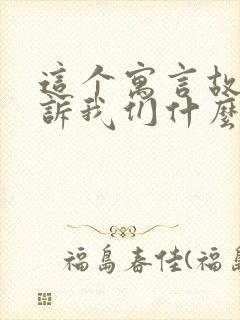 这个寓言故
訴我们什麼
福島春佳(福島